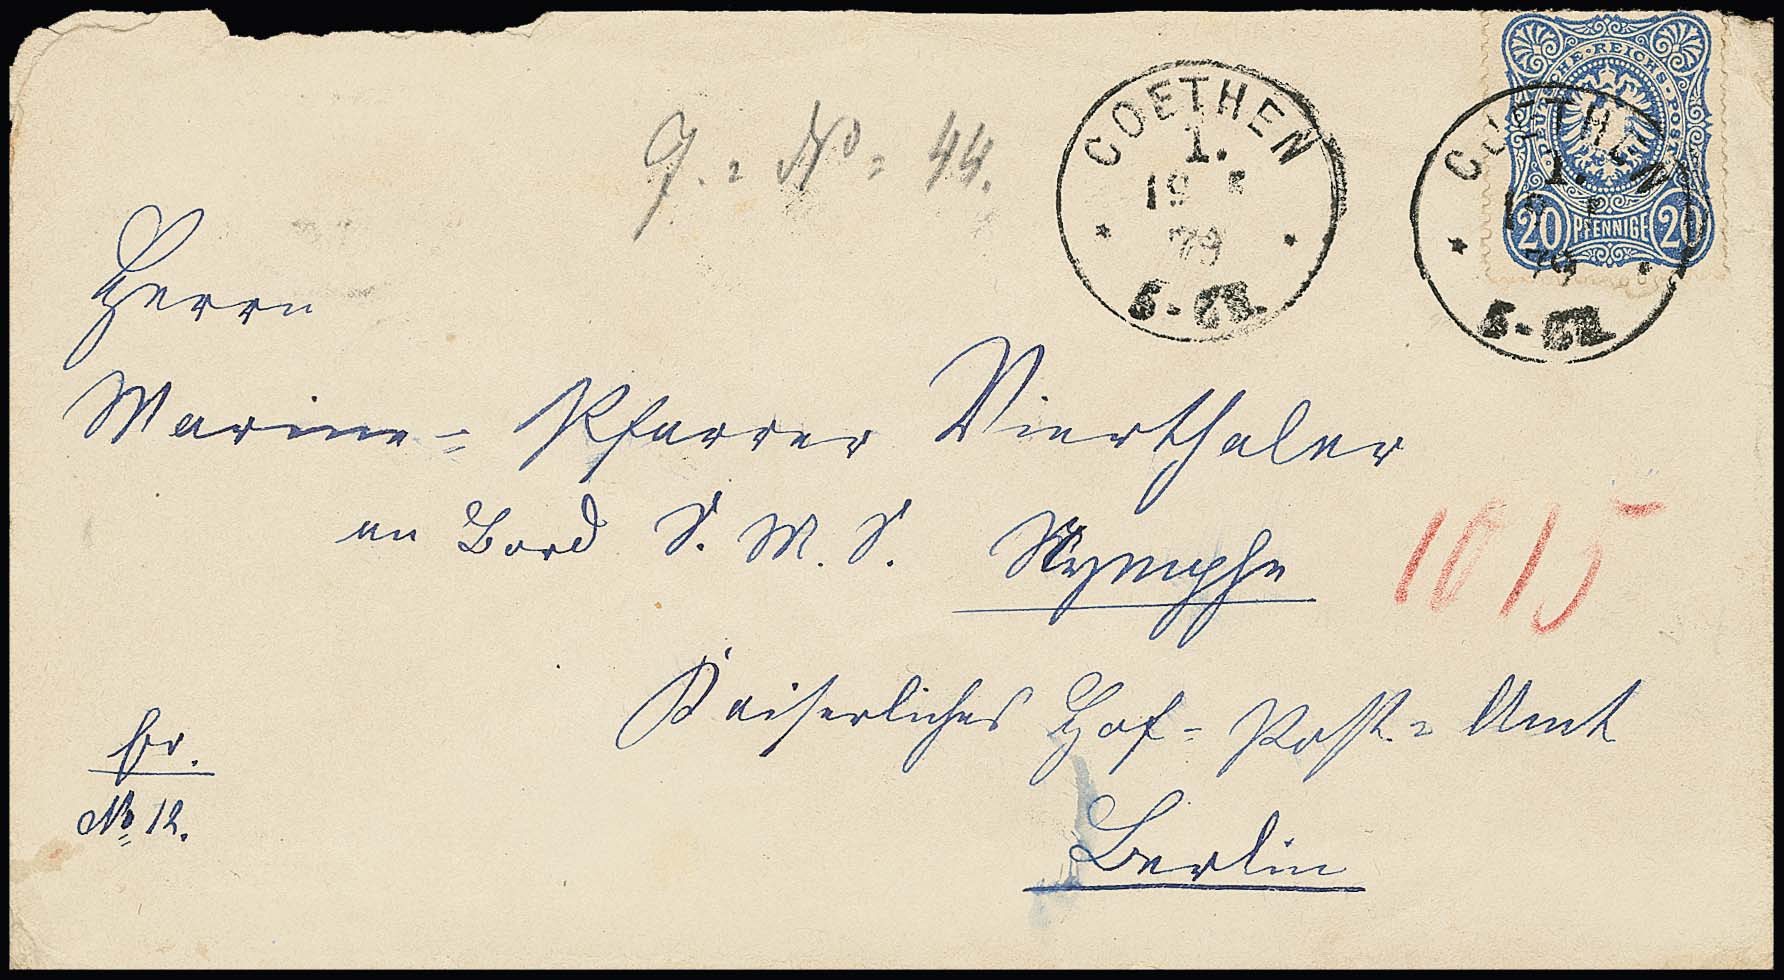 DEUTSCHE · REICHS-POST
20 PFENNIGE 20
COETHEN
1.
19 5
79
5-6N.
COETHEN
1.
19 5
79
5-6N.
J. = No = 44.
Herrn
Marine- Pfarrer Vierthaler
an Bord S. M. S. Nymphe
1015
Kaiserliches Hof- Post- Amt
Berlin
fr.
No 12.